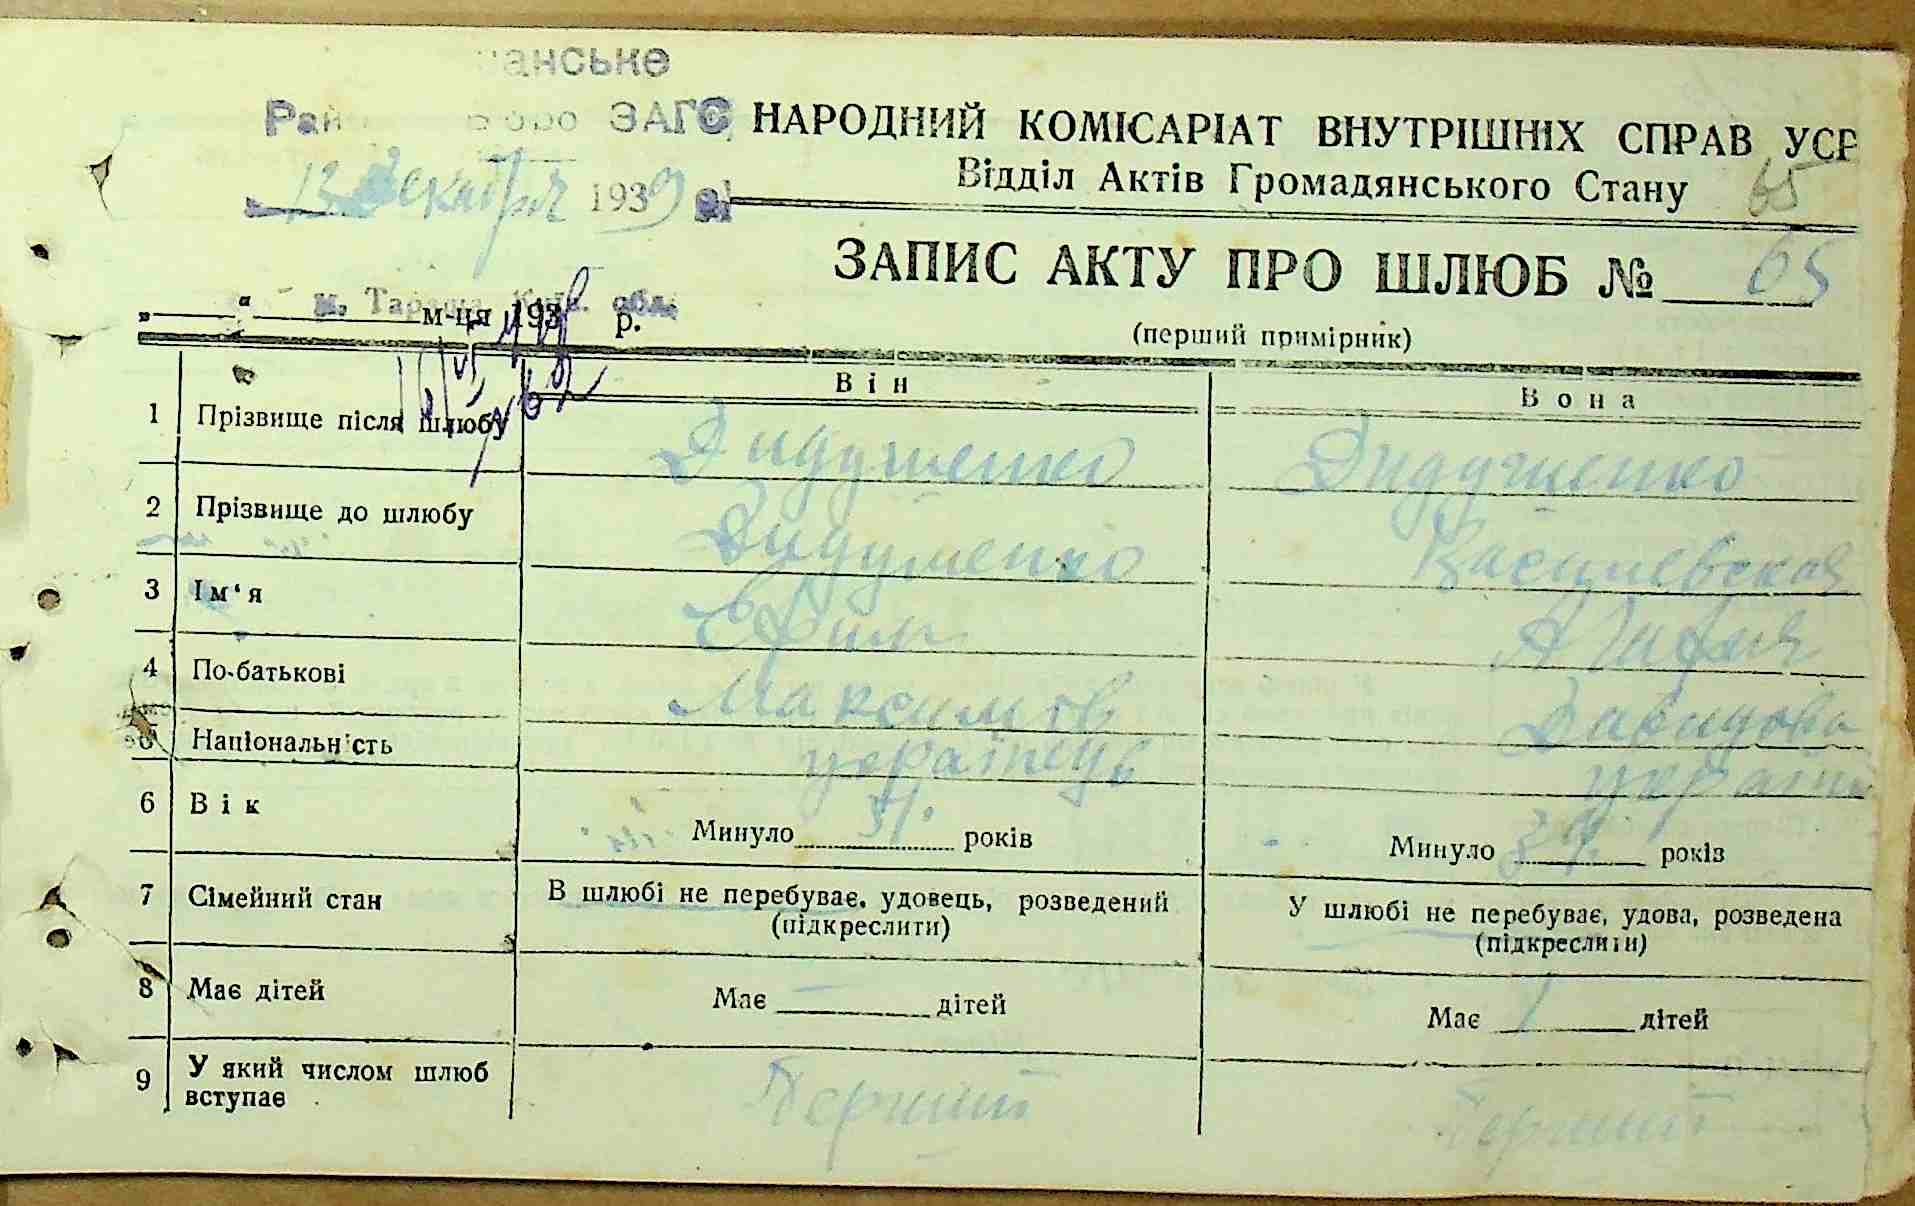 анське
Рай бюро ЗАГС НАРОДНИЙ КОМІСАРІАТ ВНУТРІШНІХ СПРАВ УСР
Відділ Актів Громадянського Стану 65
13 Декабря 1939
ЗАПИС АКТУ ПРО ШЛЮБ № 65
м. Тараща Київ. обл.
„ “ м-ця 193 р.
(перший примірник)
Він Вона
1 Прізвище після шлюбу Дидушенко Дидушенко
2 Прізвище до шлюбу Дидушенко Василевская
3 Ім‘я Ефим Агафия
4 По-батькові Максимов Давидова
5 Національність українець україн
6 Вік Минуло 31 років Минуло років
7 Сімейний стан В шлюбі не перебуває, удовець, розведений У шлюбі не перебуває, удова, розведена
(підкреслити) (підкреслити)
8 Має дітей Має — дітей Має 1 дітей
9 У який числом шлюб вступає Перший Перший